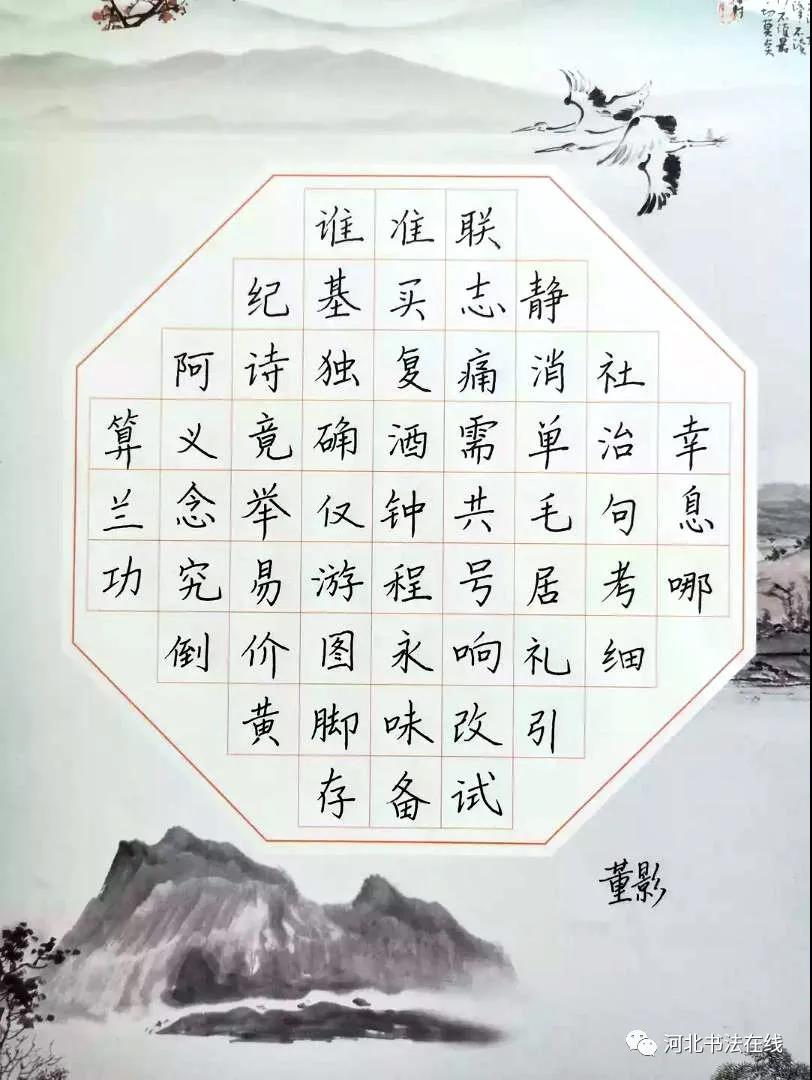 谁准联
纪基买志静
阿诗独复痛消社
算义竟确酒需单治幸
兰念举仅钟共毛句息
功究易游程号居考哪
倒价图永响礼细
黄脚味改引
存备试
董影
河北书法在线